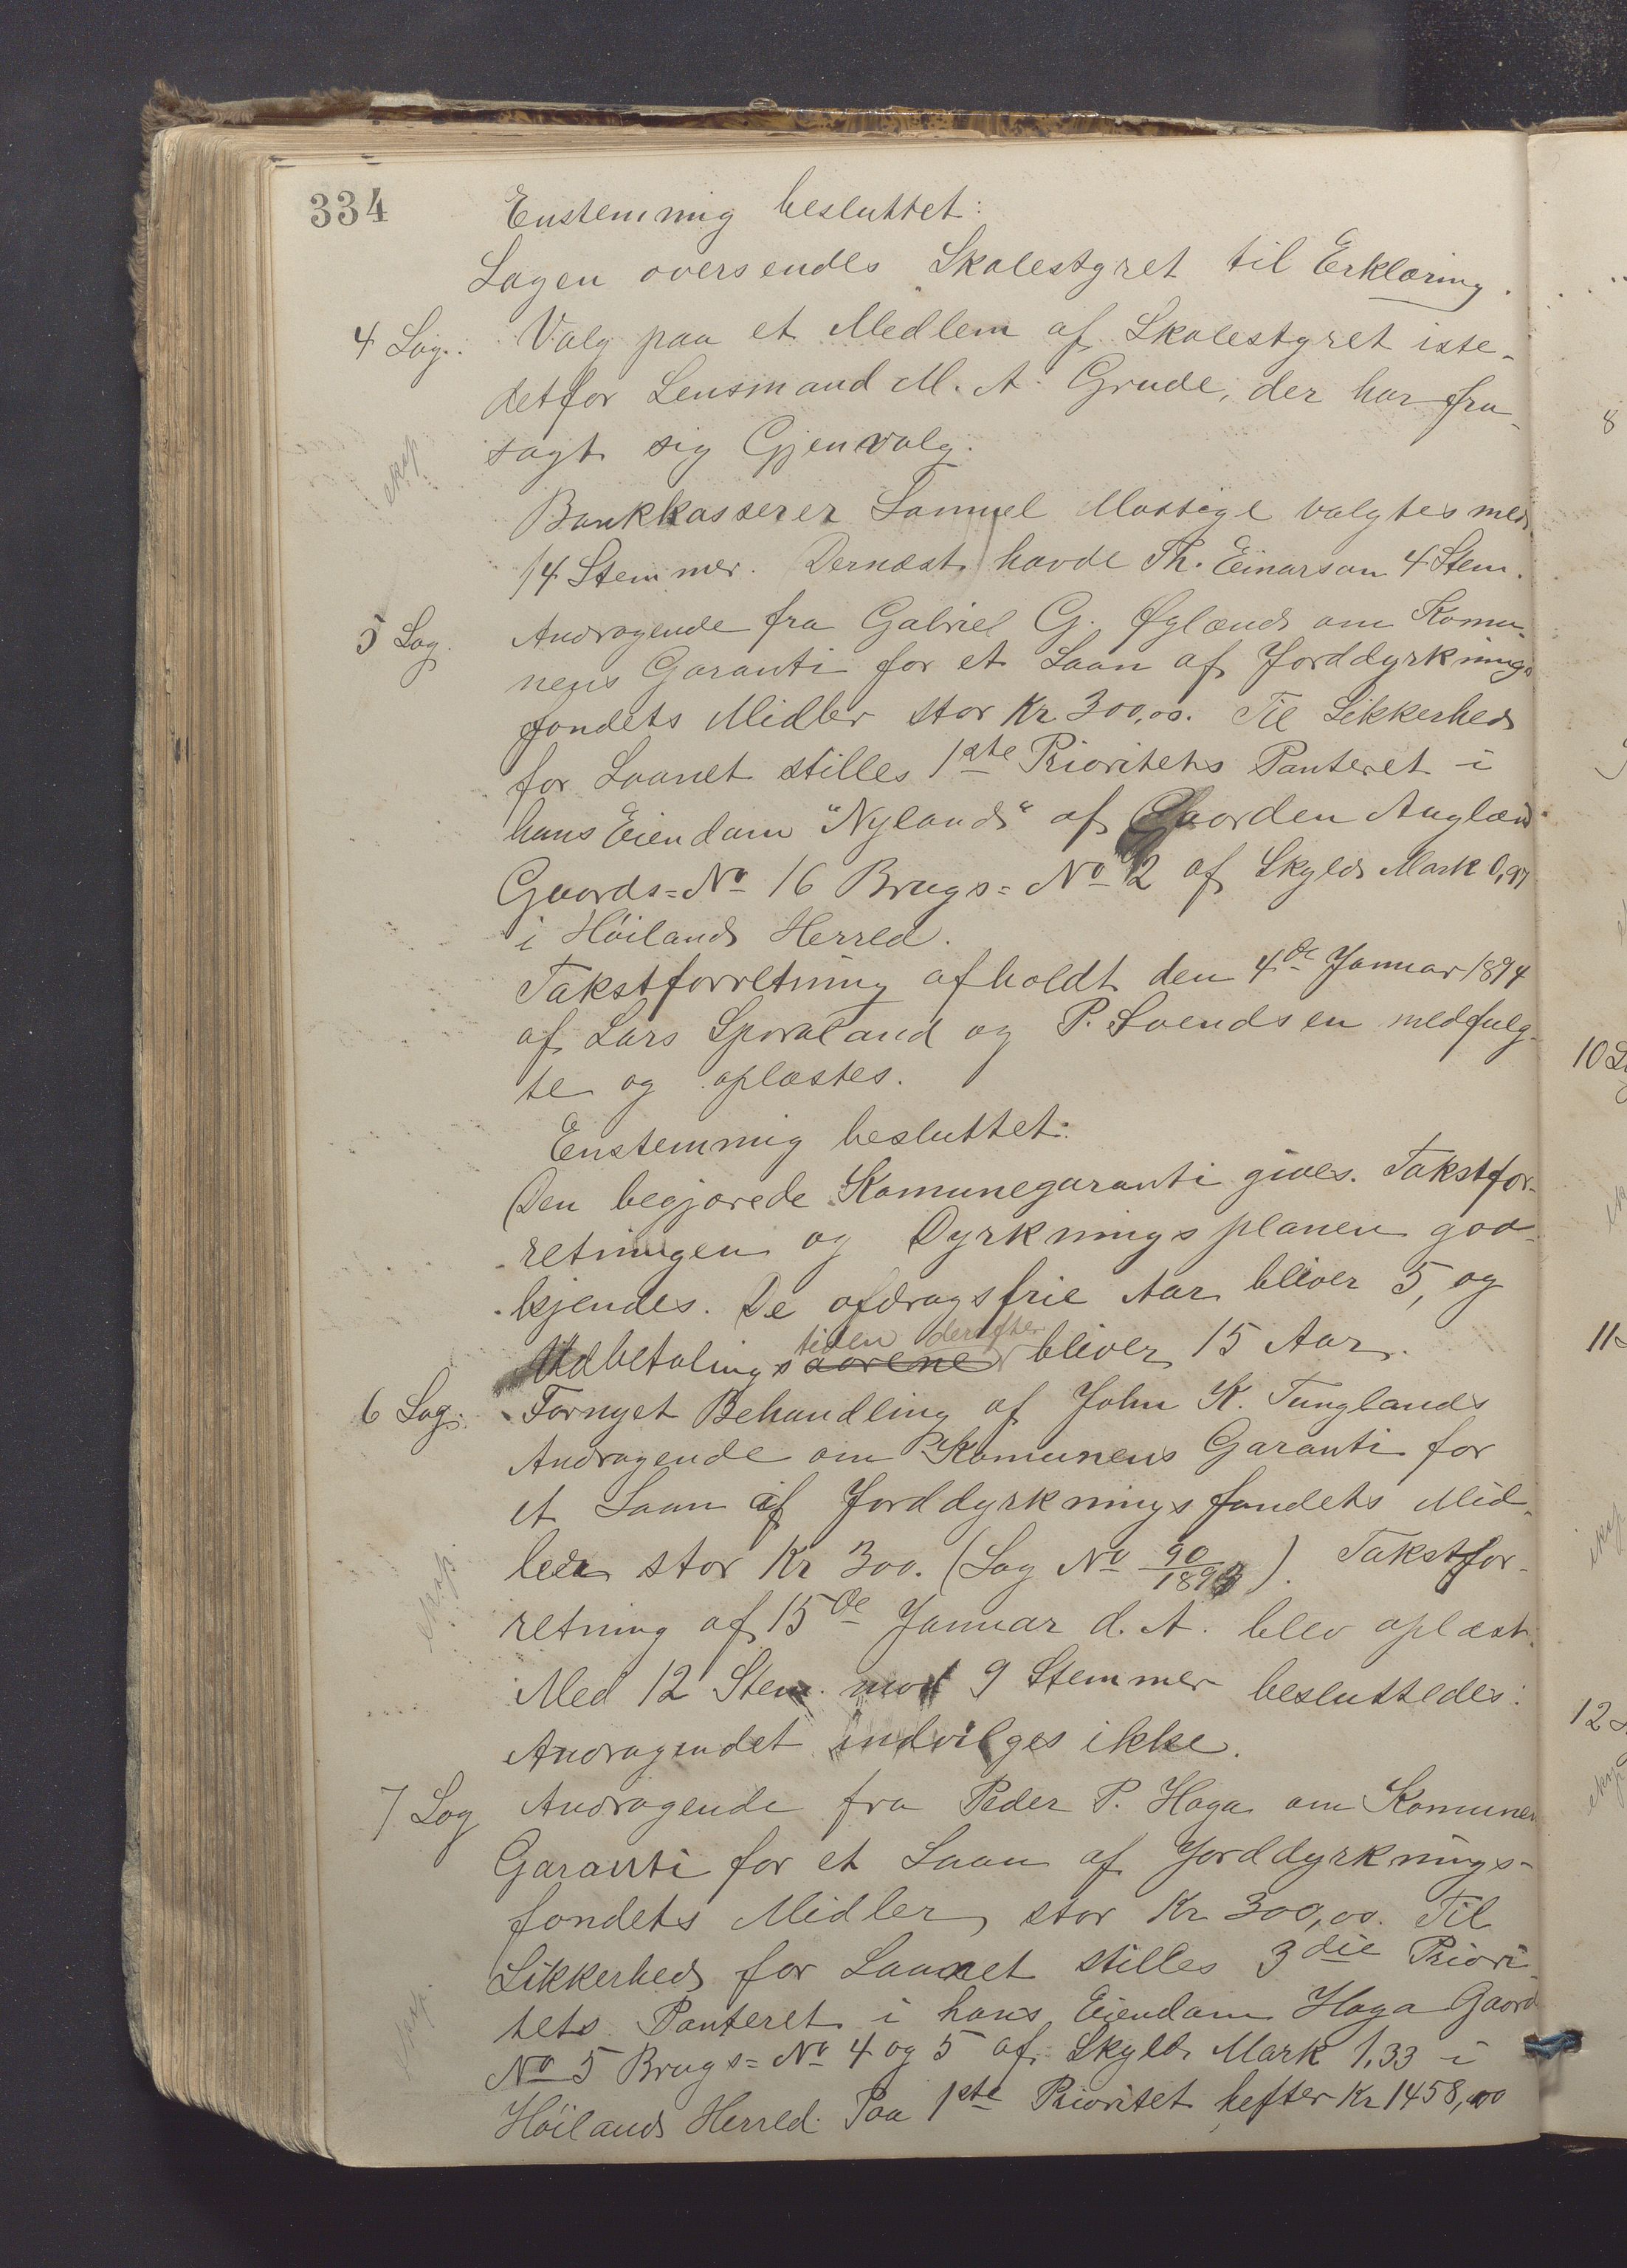 334
Enstemmig besluttet:
Sagen oversendes Skolestyret til Erklæring.
4 Sag. Valg paa et Medlem af Skolestyret iste-
detfor Lensmand M. A. Grude, der har fra-
sagt sig Gjenvalg.
eksp.
Bankkasserer Samuel Mostige valgtes med
14 Stemmer. Dernæst havde Th. Einarson 4 Stem.
5 Sag. Andragende fra Gabriel G. Øglænd om Komu-
nens Garanti for et Laan af Jorddyrknings
fondets Midler stor Kr 300,00. Til Sikkerhed
for Laanet stilles 1ste Prioritets Panteret i
hans Eiendom "Nyland" af Gaarden Auglænd
Gaards=No 16 Brugs=No 2 af Skyld Mark 0,97
i Høilands Herred.
Takstforretning afholdt den 4de Januar 1894
af Lars Sporaland og P. Svendsen medfulg-
te og oplæstes.
Enstemmig besluttet:
Den begjærede Komunegaranti gives. Takstfor-
retningen og Dyrkningsplanen god-
kjendes. De afdragsfrie Aar bliver 5, og
tiden derefter
Udbetalingsaarene bliver 15 Aar.
6 Sag. Fornyet Behandling af John K. Tunglands
Andragende om Komunens Garanti for
et Laan af Jorddyrkningsfondets Mid-
ler stor Kr 300. (Sag No 90/1893). Takstfor-
eksp.
retning af 15de Januar d. A. blev oplæst.
Med 12 Stem. mod 9 Stemmer besluttedes:
Andragendet indvilges ikke.
7 Sag Andragende fra Peder P. Haga om Komunen
Garanti for et Laan af Jorddyrknings-
fondets Midler, stor Kr 300,00. Til
Sikkerhed for Laanet stilles 3die Priori-
tets Panteret i hans Eiendom Haga Gaard
eksp.
No 5 Brugs=No 4 og 5 af Skyld Mark 1,33 i
Høilands Herred. Paa 1ste Prioritet hefter Kr 1458,00
8
10
11
12